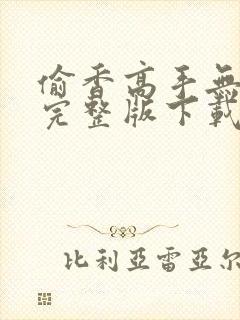 偷香高手無
完整版下載
比利亞雷亞尔